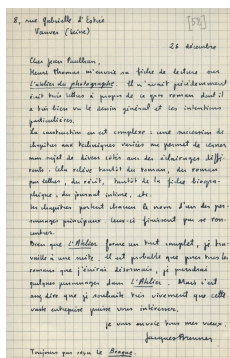 8, rue Gabrielle d'Estrée
Vanves (Seine)
[58]
26 décembre
Cher Jean Paulhan,
Henri Thomas m'envoie sa fiche de lecture sur
L'atelier du photographe. Il m'avait précédemment
écrit trois lettres à propos de ce gros roman dont il
a très bien vu le dessin général et les intentions
particulières.
La construction en est complexe : une succession de
chapitres aux techniques variées me permet de cerner
mon sujet de divers côtés avec des éclairages diffé-
rents. Cela relève tantôt du roman, du roman
par lettres, du récit, tantôt de la fiche biogra-
phique, du journal intime, etc.
Les chapitres portent chacun le nom d'un des per-
sonnages principaux. Ceux-ci finissent par se ren-
contrer.
Bien que L'Atelier forme un tout complet, je tra-
vaille à une suite. Il est probable que pour tous les
romans que j'écrirai désormais, je prendrai
quelques personnages dans L'Atelier. Mais c'est
vous dire que je souhaite très vivement que cette
vaste entreprise puisse vous intéresser.
Je vous envoie tous mes vœux.
Jacques Brenner
Toujours pas reçu le Braque.